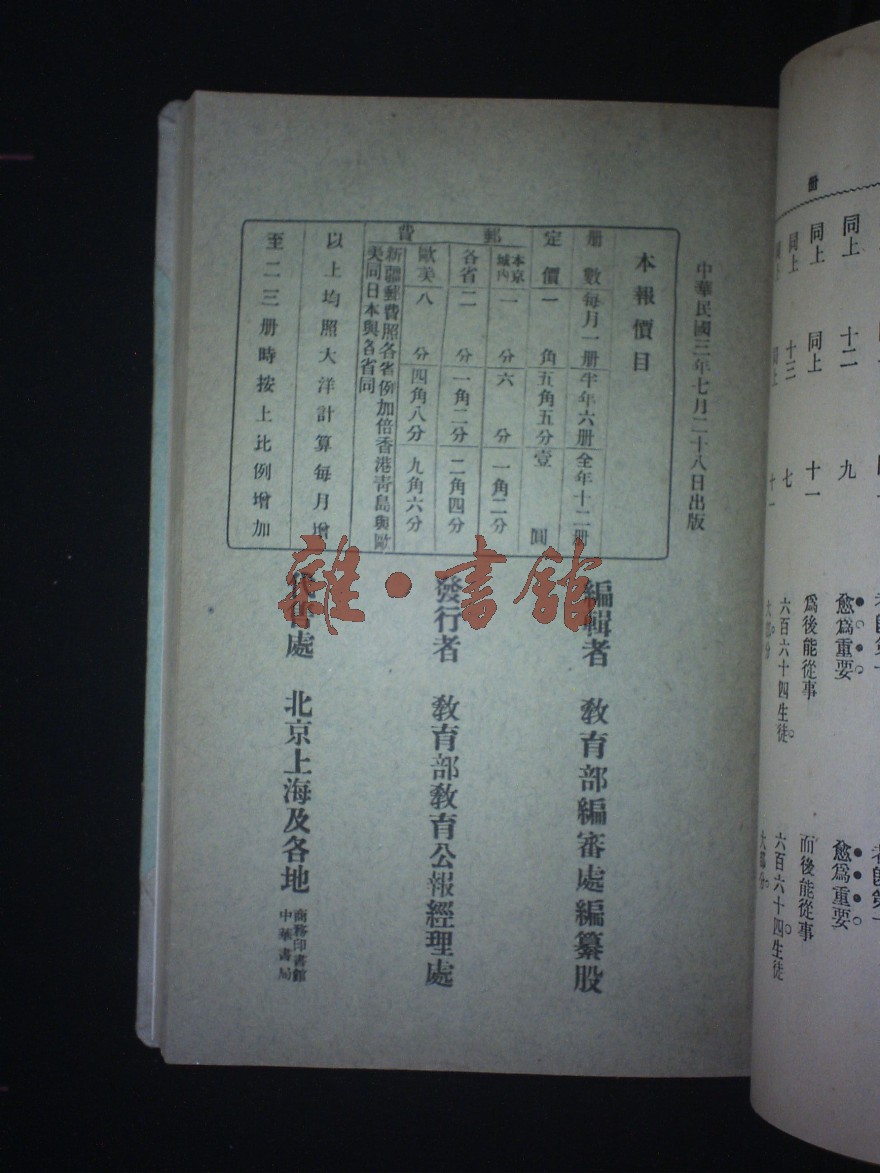 冊
同上　十二　九　愈爲重要　愈爲重要
同上　同上　十一　爲後能從事　而後能從事
同上　十三　七　六百六十四生徒　六百六十四生徒
同上　同上　十一　大部分　大部分
中華民國三年七月二十八日出版
本報價目
冊數　每月一冊　半年六冊　全年十二冊
定價　一角　五角五分　壹圓
郵費
本京城內　一分　六分　一角二分
各省　二分　一角二分　二角四分
歐美　八分　四角八分　九角六分
新疆郵費照各省例加倍香港靑島與歐
美同日本與各省同
以上均照大洋計算每月增
至二三册時按上比例增加
編輯者　敎育部編審處編纂股
發行者　敎育部敎育公報經理處
售處　北京上海及各地
商務印書館
中華書局
雜·書館